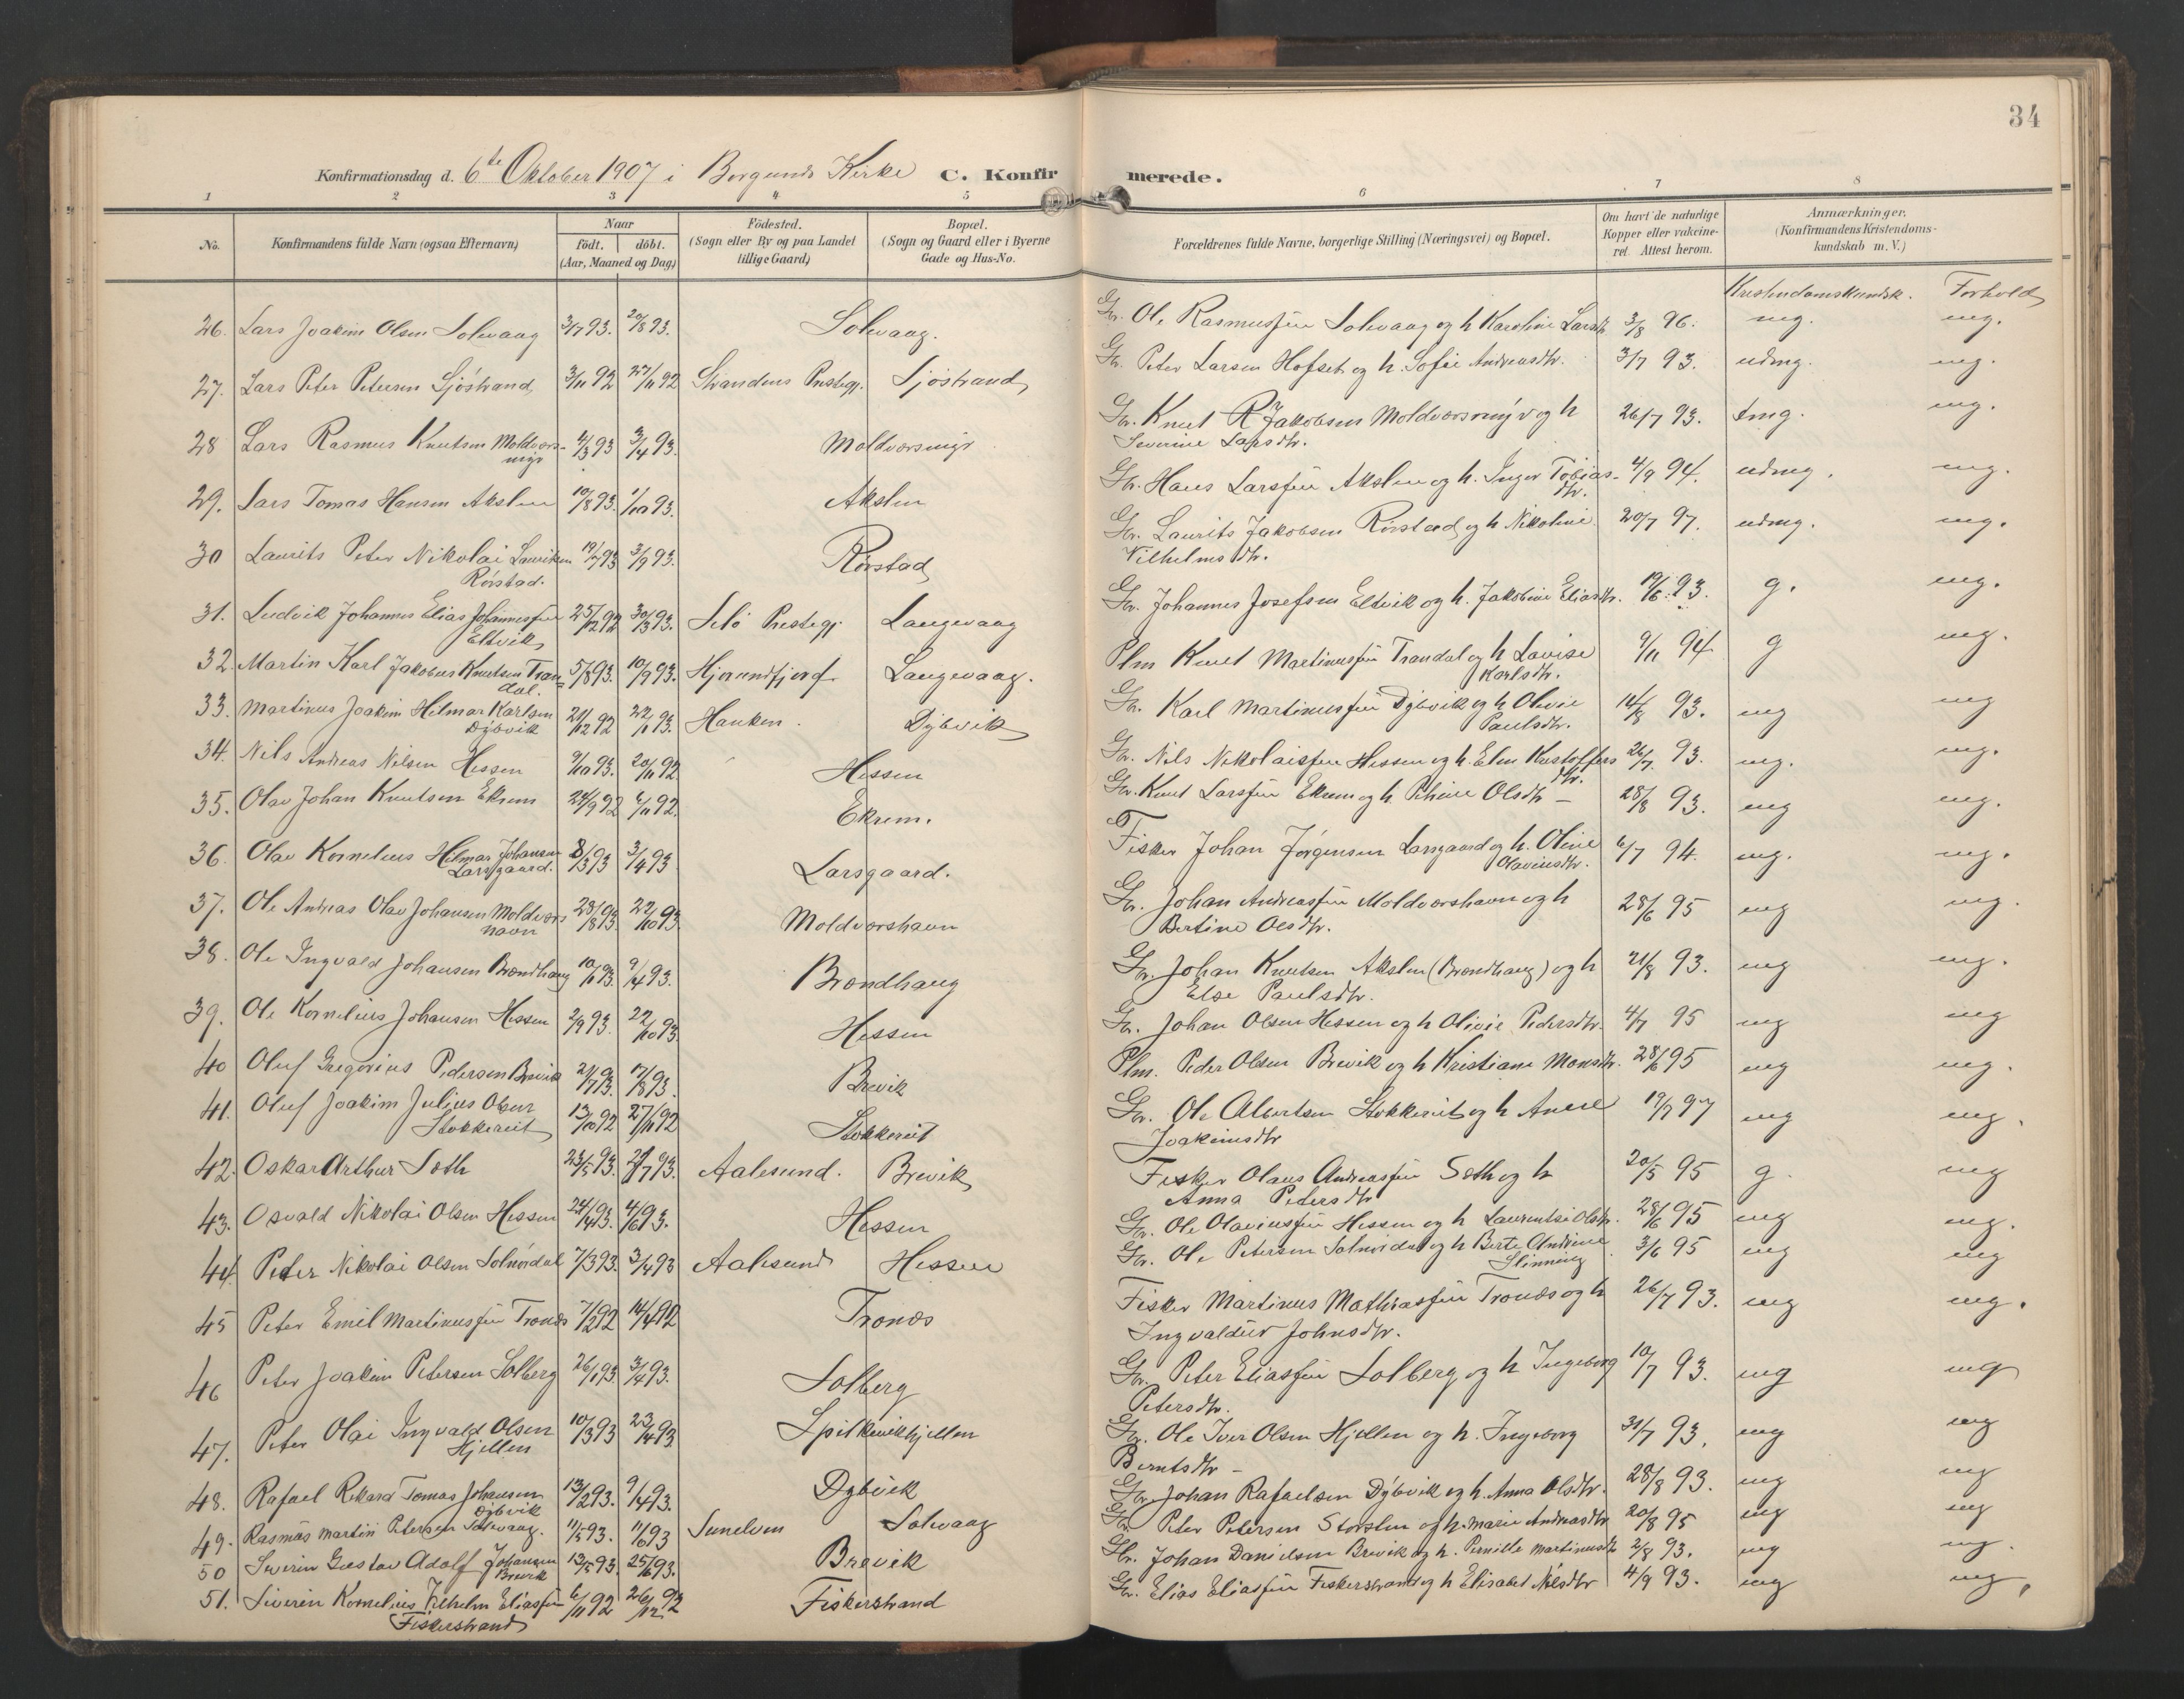 34
Konfirmationsdag d. 6te Oktober 1907 i Borgunds Kirke C. Konfirmerede.
1 2 3 4 5 6 7 8
No. Konfirmandens fulde Navn (ogsaa Efternavn) Naar født. døbt. (Aar, Maaned og Dag) Födested. (Sogn eller By og paa Landet tillige Gaard) Bopæl. (Sogn og Gaard eller i Byerne Gade og Hus-No. Forældrenes fulde Navne, borgerlige Stilling (Næringsvei) og Bopæl. Om havt de naturlige Kopper eller vakcineret. Attest herom. Anmærkninger. (Konfirmandens Kristendomskundskab m. V.)
Kristendomskundsk. Forhold
26. Lars Joakim Olsen Solevaag 3/7 93. 20/8 93. Solevaag. Gr. Ole Rasmussen Solevaag og h Karoline Larsdtr. 3/8 96. mg. mg.
27. Lars Peter Petersen Sjöstrand 3/11 92 27/11 92 Strandens Prestegj. Sjöstrand Gr. Peter Larsen Hofset og h. Sofie Andreasdtr. 3/7 93. udmg. mg.
28 Lars Rasmus Knutsen Moldværs-
myr 4/3 93 3/4 93. Moldværsmyr Gr. Knut R Jakobsen Moldværsmyr og h
Severine Larsdtr. 26/7 93. tmg. mg.
29. Lars Tomas Hansen Akslen 10/8 93. 1/10 93. Akslen Gr. Hans Larssen Akslen og h. Inger Tobias-
dtr. 4/9 94. udmg. mg.
30 Laurits Peter Nikolai Lauritsen
Rörstad. 19/7 93 3/9 93. Rörstad Gr. Laurits Jakobsen Rörstad og h Nikoline
Vilhelmsdtr. 20/7 97. udmg. mg.
31. Ludvik Johannes Elias Johannessen
Eltvik 25/12 92 30/3 93. Selö Prestegj. Langevaag Gr. Johannes Josefsen Eltvik og h. Jakobine Eliasdtr. 19/6 93. g. mg.
32. Martin Karl Jakobus Knutsen Tran-
dal. 5/8 93. 10/9 93. Hjørundfjord Langevaag. Plm Knut Martinussen Trandal og h Lovise
Karlsdtr. 9/11 94 g mg.
33. Martinus Joakim Hilmar Karlsen
Dybvik 21/12 92 22/1 93. Hanken. Dybvik Gr. Karl Martinussen Dybvik og h Olivie
Paulsdtr. 14/8 93. mg mg
34. Nils Andreas Nilsen Hessen 9/10 93. 20/11 92 Hessen Gr. Nils Nikolaissen Hessen og h. Elen Kristoffers
dtr. 26/7. 93. mg. mg.
35. Olav Johan Knutsen Ekrem 24/9 92 6/11 92. Ekrem. Gr. Knut Larssen Ekrem og h. Petrine Olsdtr – 28/8 93. mg mg.
36. Olav Kornelius Hilmar Johansen
Larsgaard. 8/3 93 3/4 93 Larsgaard. Fisker Johan Jørgensen Larsgaard og h. Oline
Olavinsdtr. 6/7 94. mg. mg.
37. Ole Andreas Olav Johansen Moldværs
havn 28/8 93. 22/10 93. Moldværshavn Gr. Johan Andreassen Moldværshavn og h
Bertine Olsdtr. 28/6 95 mg mg.
38. Ole Ingvald Johansen Brendhaug 10/1 93. 9/4 93. Brendhaug Gr. Johan Knutsen Akslen (Brendhaug) og h
Else Paulsdtr. 21/8 93. mg mg.
39. Ole Kornelius Johansen Hessen 2/9 93. 22/10 93. Hessen Gr. Johan Olsen Hessen og h Olivie Pedersdtr. 4/7 95 mg mg
40 Oluf Gregorius Pedersen Brevik 21/7 93. 17/8 93. Brevik Plm. Peder Olsen Brevik og h Kristiane Monsdtr. 28/6 95 mg mg.
41. Oluf Joakim Julius Olsen
Stokkereit 13/10 92 27/11 92 Stokkereit Gr. Ole Albertsen Stokkereit og h Anne
Joakimsdtr 19/7 97 mg mg.
42. Oskar Arthur Sæth 23/5 93. 29/7 93. Aalesund. Brevik Fisker Olaus Andreassen Sæth og h
Anna Pedersdtr 20/5 95 g. mg
43. Osvald Nikolai Olsen Hessen 24/4 93. 4/6 93. Hessen Gr. Ole Olavinssen Hessen og h Laurentse Olsdtr. 28/6 95 mg mg.
44. Peder Nikolai Olsen Solnördal 7/3 93. 3/4 93 Aalesund Hessen Gr. Ole Petersen Solnördal og h Berte Andrine
Slinning 3/6 95 mg mg
45 Peter Emil Martinussen Tronæs 7/2 92 14/4 92 Tronæs Fisker Martinus Mathiassen Tronæs og h
Ingvalduv Johnsdtr. 26/7 93. mg mg.
46 Peter Joakim Petersen Solberg 26/1 93. 3/4 93. Solberg Gr. Peter Eliassen Solberg og h Ingeborg
Petersdtr. 10/7 93. mg mg
47. Peter Olai Ingvald Olsen
Hjellen 10/3 93 23/4 93 Spilkevikhjellen Gr. Ole Iver Olsen Hjellen og h. Ingeborg
Berntsdtr – 31/7 93. mg mg
48. Rafael Rikard Tomas Johansen
Dybvik 13/2 93. 9/4 93. Dybvik Gr. Johan Rafaelsen Dybvik og h. Anna Olsdtr. 28/8 93. mg mg
49. Rasmus Martin Petersen Solevaag. 11/5 93. 11/6 93 Sunelven Solevaag Gr. Peter Petersen Storslen og h. Marie Andreasdtr 20/8 95 mg mg
50 Severin Gustav Adolf Johansen
Brevik 13/5 93. 25/6 93. Brevik Gr. Johan Danielsen Brevik og h. Pernille Martinusdtr 2/8 93. mg mg.
51. Severin Kornelius Vilhelm Eliassen
Fiskerstrand 6/11 92 26/12 92 Fiskerstrand Gr. Elias Eliassen Fiskerstrand og h Elisabet Nilsdtr 4/9 93. mg mg,